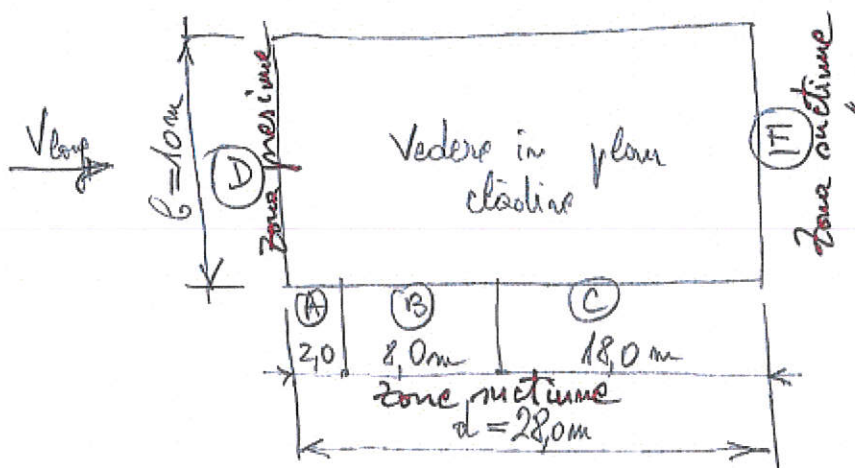 Vlong
b=10m
D
zona presiune
Vedere in plan
clădire
E
zona suctiune
A
B
C
2,0
8,0m
18,0m
zone suctiune
d=28,0m